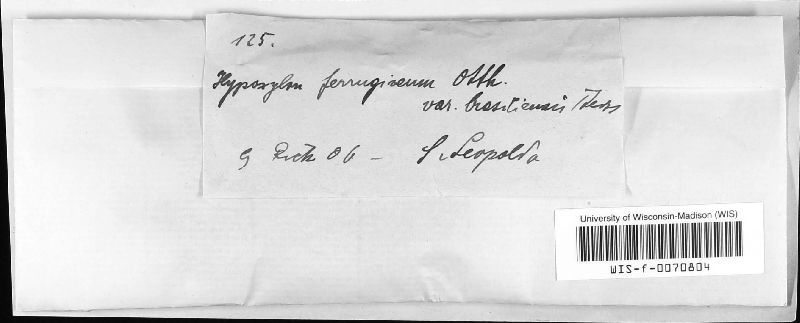 125.
Hypoxylon ferrugineum Otth.
var. brasiliensis Theiss
Rick 06 – S. Leopoldo
University of Wisconsin-Madison (WIS)
WIS-f-0070804